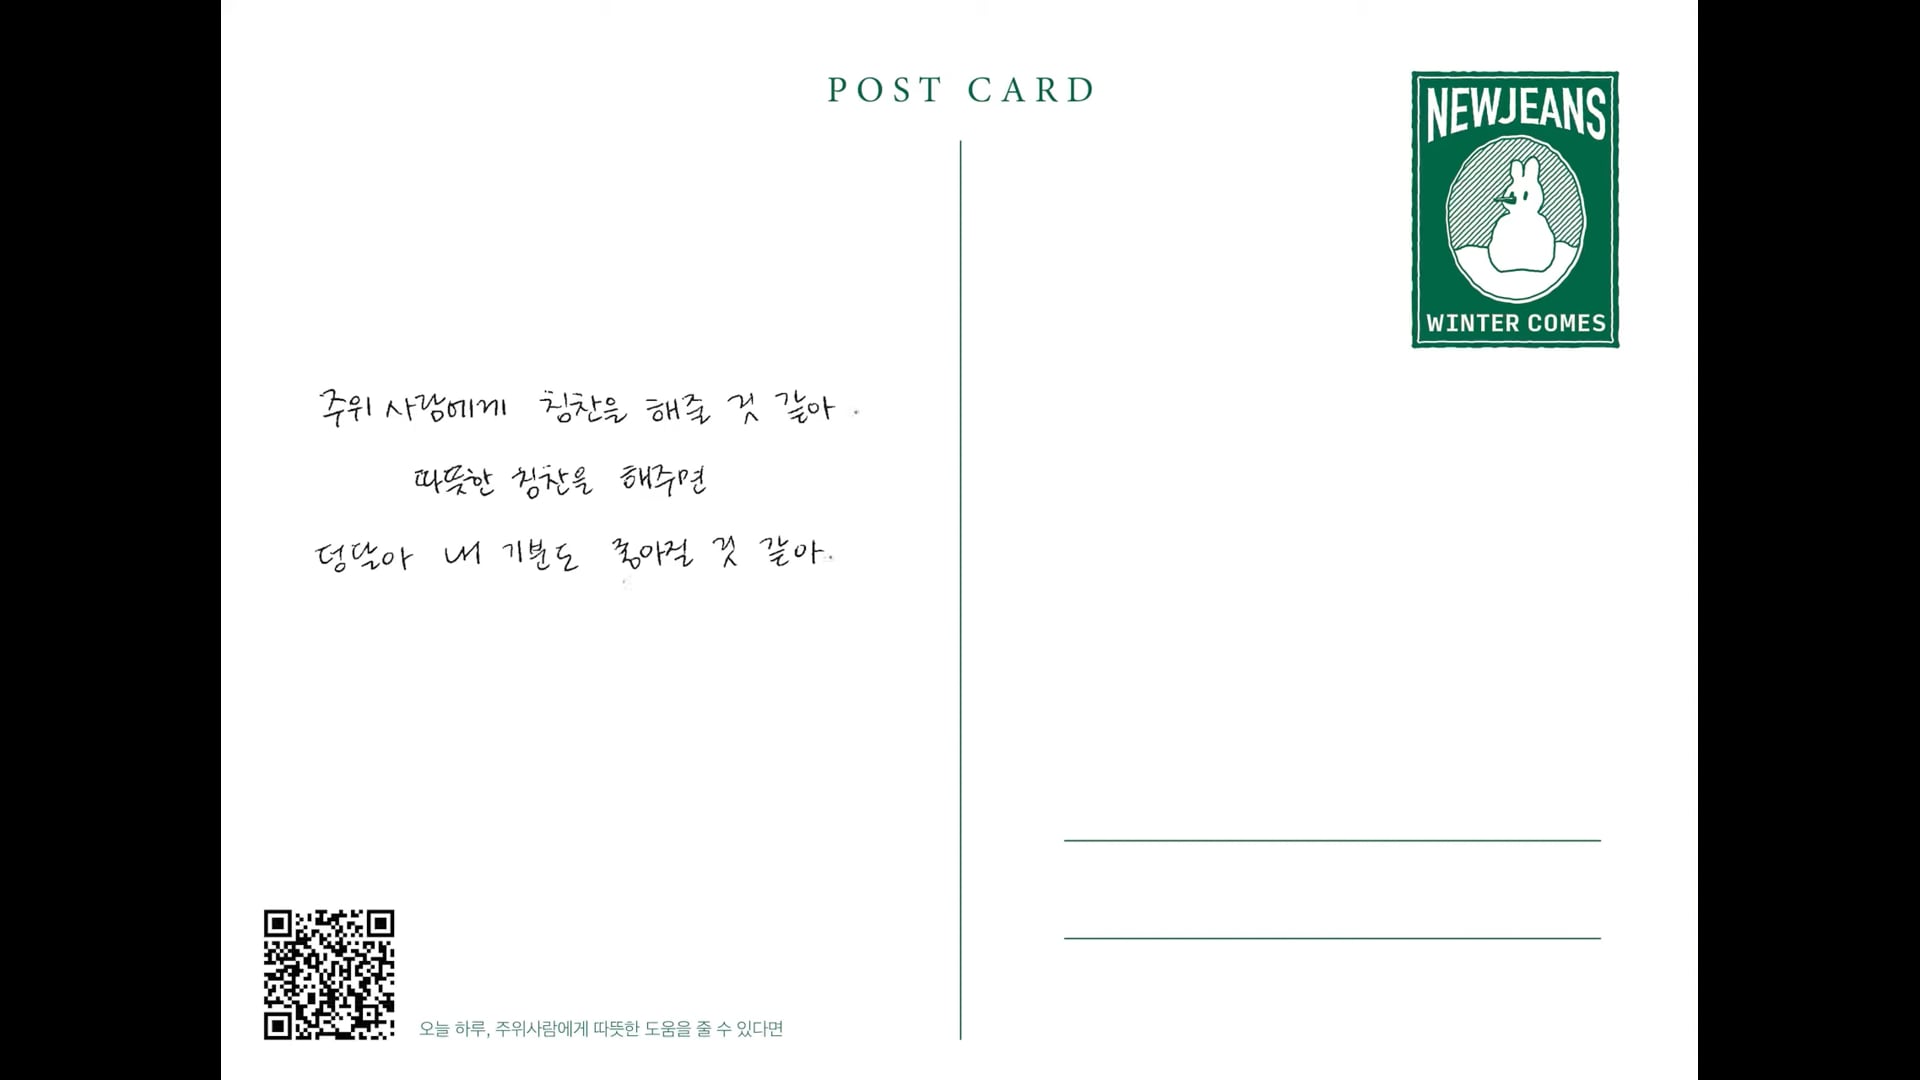 POST CARD
NEWJEANS
WINTER COMES
주위 사람에게 칭찬을 해줄 것 같아.
따뜻한 칭찬을 해주면
덩달아 내 기분도 좋아질 것 같아.
오늘 하루, 주위사람에게 따뜻한 도움을 줄 수 있다면